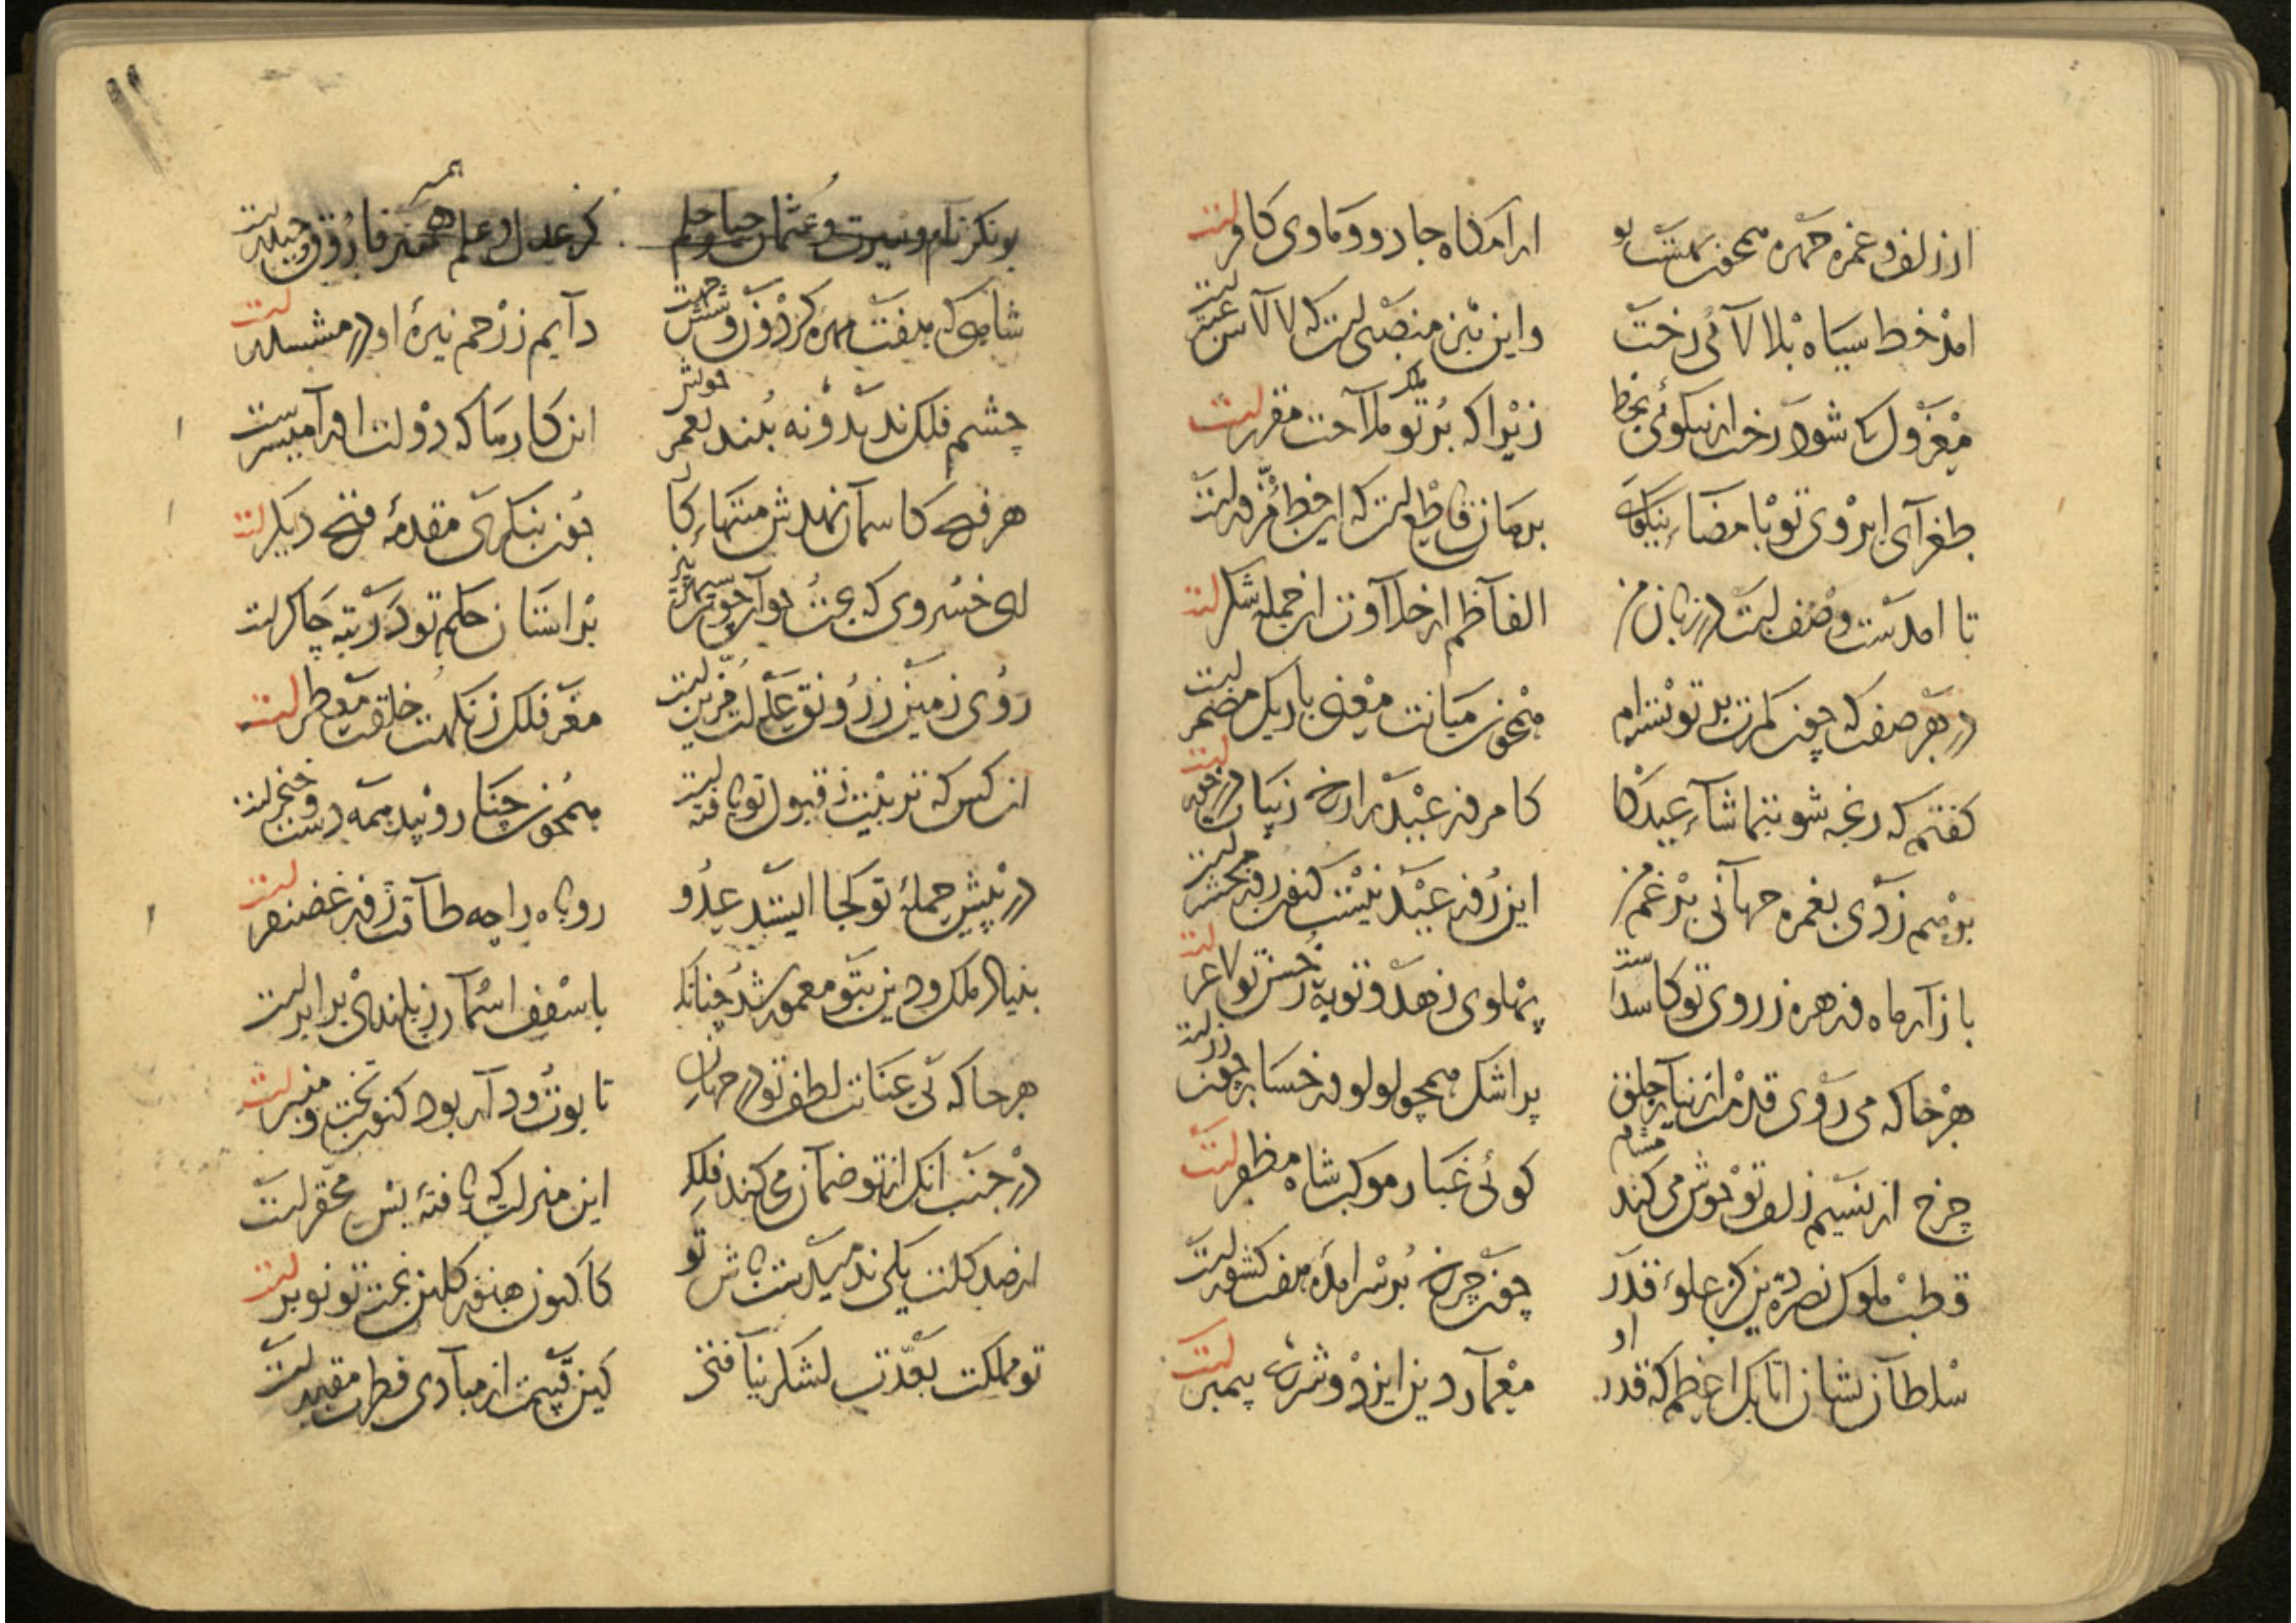 از زلف و غمزه چهره همچون بهشت تو آرامگاه جادو و ماوی کافرست
امد خط سیاه بلالائی رخت واین نیز منصبی است که لالاش عنبرست
معزول کی شود رخت از نیکوئی بخط زیرا که بر تو ملک ملاحت مقررست
طغرای ابروی تو بامضاء نیکوئی برهان قاطع است که آن خط مزورست
تا امدست وصف لبت در زبان من الفاظم از حلاوت از جمله شکرست
در هر صفت که چون کمرت بر تو بسته‌ام همچون میانت معنی باریک مضمرست
گفتم که رنجه شو بتماشاء عیدگاه کامروز عید را رخ زیبات درخورست
برهم زدی بغمزه جهانی بر غم من این روز عید نیست کنون روز محشرست
بازار ماه و زهره ز روی تو کاسدست پهلوی زهد و توبه ز حسن تو لاغرست
هر جا که می روی قدمت از نیاز خلق پر اشک همچو لولو و رخسار چون زرست
چرخ از نسیم زلف تو خوش می کند مشام گوئی غبار موکب شاه مظفرست
قطب ملوک نصرة دین کز علوء قدر چون چرخ بر سرامده هفت کشورست
سلطان نشان اتابک اعظم که قدر او معمار دین ایزد و شرع پیمبرست
بوبکر نام و سیرت و عثمان حیا و حلم کز عدل و علم همسر فاروق و حیدرست
شاهی که هفت مهره گردون و شش جهت دایم ز زخم نیزۀ او در مششدرست
چشم فلک ندید و نه بیند بعمر خویش ان کارها که دولت او را میسرست
هر فتح کاسمان نهدش منتهاء کار چون بنگری مقدمۀ فتح دیگرست
ای خسروی که بر استان حکم تو در رتبه چاکرست
روی زمین ز رونق عدلت مزین است مغز فلک ز نکهت خلقت معطرست
ان کس که تربیت ز قبول تو یافته است همچون چنار و بید همه دست و خنجرست
در پیش حملۀ تو کجا ایستد عدو روباه را چه طاقت زور غضنفرست
بنیاد ملک و دین بتو معمور شد چنانک با سقف اسمان ز بلندی برابرست
هر جا که بی عنایت لطف تو در جهان تابوت و دار بود کنون تخت و منبرست
در جنب انک از تو ضمان می کند فلک این منزلت که یافتۀ بس محقرست
از صد گلت یکی ندمیدست باش تو کاکنون هنوز گلبن بخت تو نوبرست
تو مملکت بقوت لشکر نیافتی کین قیمت از مبادی فطرت مقدرست